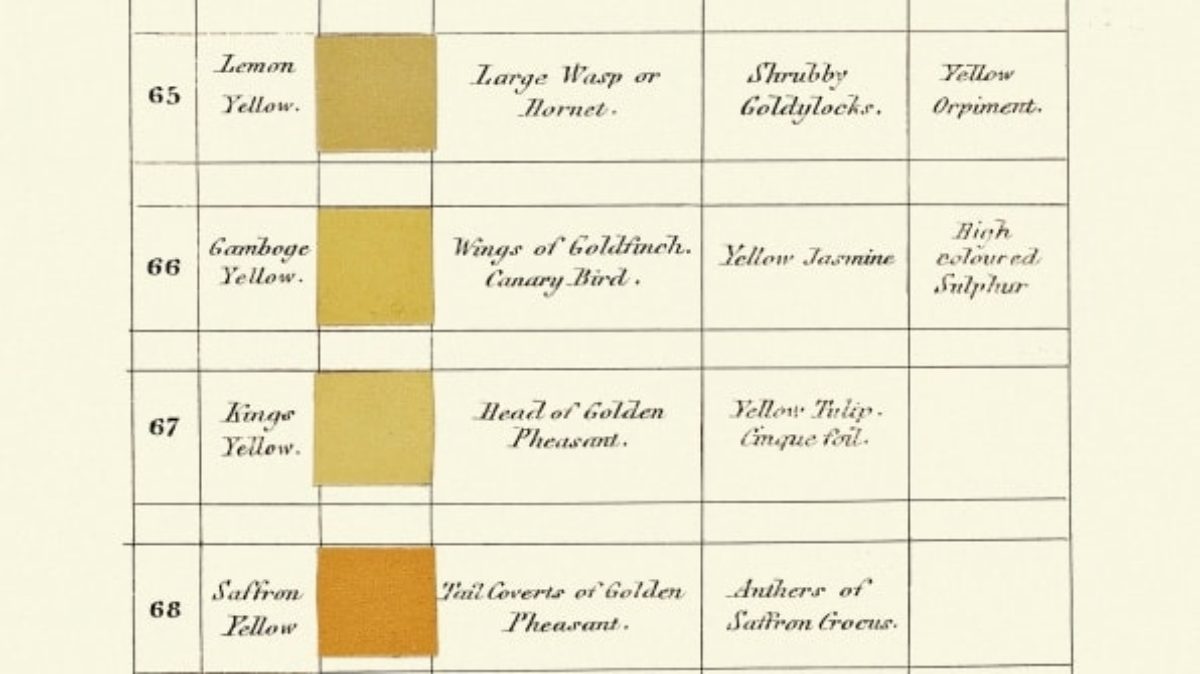 65
Lemon
Yellow.
Large Wasp or
Hornet.
Shrubby
Goldylocks.
Yellow
Orpiment.
66
Gamboge
Yellow.
Wings of Goldfinch.
Canary Bird.
Yellow Jasmine
High
coloured
Sulphur
67
Kings
Yellow.
Head of Golden
Pheasant.
Yellow Tulip.
Cinque foil.
68
Saffron
Yellow
Tail Coverts of Golden
Pheasant.
Anthers of
Saffron Crocus.